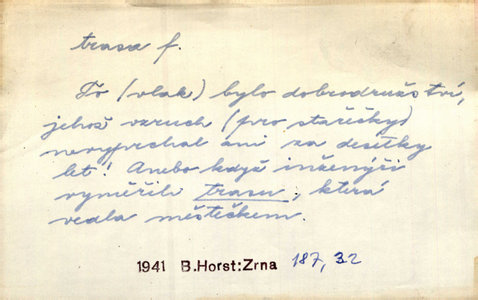 trasa f.
To (vlak) bylo dobrodružství,
jehož vzruch (pro stařečky)
nevyprchal ani za desítky
let! Anebo když inženýři
vyměřili trasu, která
vedla městečkem.
1941 B.Horst:Zrna 187, 32